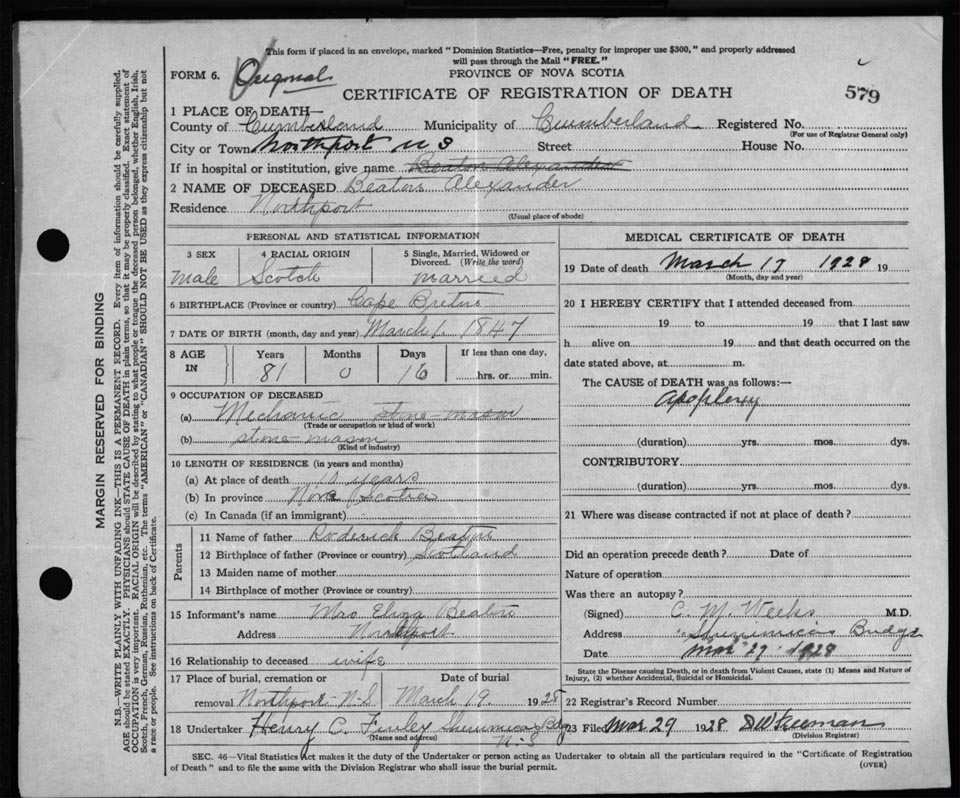 This form if placed in an envelope, marked "Dominion Statistics—Free, penalty for improper use $300," and properly addressed
will pass through the Mail "FREE."
FORM 6. Original
PROVINCE OF NOVA SCOTIA
CERTIFICATE OF REGISTRATION OF DEATH
579
1 PLACE OF DEATH—
County of Cumberland Municipality of Cumberland Registered No.
(For use of Registrar General only)
City or Town Northport N S Street House No.
If in hospital or institution, give name Beaton Alexander
2 NAME OF DECEASED Beaton Alexander
Residence Northport
(Usual place of abode)
PERSONAL AND STATISTICAL INFORMATION
3 SEX
male
4 RACIAL ORIGIN
Scotch
5 Single, Married, Widowed or
Divorced. (Write the word)
married
6 BIRTHPLACE (Province or country) Cape Breton
7 DATE OF BIRTH (month, day and year) March 1. 1847
8 AGE IN
Years Months Days If less than one day,
81 0 16 hrs. or min.
9 OCCUPATION OF DECEASED
(a) Mechanic stone-mason
(Trade or occupation or kind of work)
(b) stone-mason
(Kind of industry)
10 LENGTH OF RESIDENCE (in years and months)
(a) At place of death 10 years
(b) In province Nova Scotia
(c) In Canada (if an immigrant)
Parents
11 Name of father Roderick Beaton
12 Birthplace of father (Province or country) Scotland
13 Maiden name of mother
14 Birthplace of mother (Province or country)
15 Informant's name Mrs Eliza Beaton
Address Northport
16 Relationship to deceased wife
17 Place of burial, cremation or Date of burial
removal Northport N.S March 19 1928
18 Undertaker Henry C. Finley Shinimicas Bdg
(Name and address) N.S
MEDICAL CERTIFICATE OF DEATH
19 Date of death March 17 1928 19
(Month, day and year)
20 I HEREBY CERTIFY that I attended deceased from
19 to 19 that I last saw
h alive on 19 and that death occurred on the
date stated above, at m.
The CAUSE of DEATH was as follows:—
Apoplexy
(duration) yrs. mos. dys.
CONTRIBUTORY
(duration) yrs. mos. dys.
21 Where was disease contracted if not at place of death?
Did an operation precede death? Date of
Nature of operation
Was there an autopsy?
(Signed) C. M. Weeks M.D.
Address Shinimicas Bridge
Date Mar 27 1928
State the Disease causing Death, or in death from Violent Causes, state (1) Means and Nature of
Injury, (2) whether Accidental, Suicidal or Homicidal.
22 Registrar's Record Number
23 Filed Mar 29 1928 DW Freeman
(Division Registrar)
SEC. 46—Vital Statistics Act makes it the duty of the Undertaker or person acting as Undertaker to obtain all the particulars required in the "Certificate of Registration
of Death" and to file the same with the Division Registrar who shall issue the burial permit. (OVER)
MARGIN RESERVED FOR BINDING
N.B.—WRITE PLAINLY WITH UNFADING INK—THIS IS A PERMANENT RECORD. Every item of information should be carefully supplied.
AGE should be stated EXACTLY. PHYSICIANS should STATE CAUSE OF DEATH in plain terms, so that it may be properly classified. Exact statement of
OCCUPATION is very important. RACIAL ORIGIN will be described by stating to what people or tongue the deceased person belonged, whether English, Irish,
Scotch, French, German, Russian, Ruthenian, etc. The terms "AMERICAN" or "CANADIAN" SHOULD NOT BE USED as they express citizenship but not
a race or people. See instructions on back of Certificate.